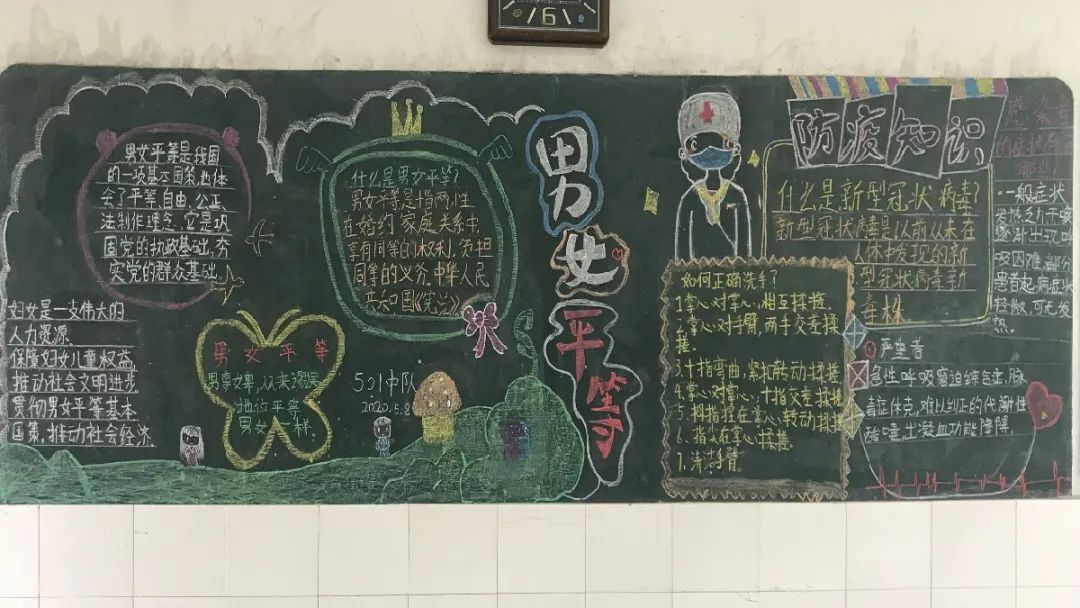 6
男女平等是我国
的一项基本国策,他体
会了平等,自由,公正,
法制作理念,它是巩
固党的执政基础,夯
实党的群众基础。
妇女是一支伟大的
人力资源
保障妇女儿童权益,
推动社会文明进步
贯彻男女平等基本
国策,推动社会经济.
什么是男女平等?
男女平等是指两性
在婚约 家庭关系中,
享有同等的权利,负担
同等的义务.中华人民
共和国《宪法》
男女平等
地位平等
男女一样。
501中队
2020.5.8
男女平等
防疫知识
什么是新型冠状病毒?
新型冠状病毒是以前从未在
人体中发现的新
型冠状病毒新
毒株
如何正确洗手?
1.掌心对掌心,相互揉搓.
2.掌心对手臂,两手交差揉
搓.
3.十指弯曲,紧扣转动揉搓
4.掌心对掌心,十指交差揉搓
5.拇指握在掌心,转动揉搓
6.指尖在掌心揉搓.
7.清洁手臂。
感染者
的症状有
哪些?
一般症状
发热、乏力、干咳
逐渐出现呼
吸困难,部分
患者起病症状
轻微,可无发
热。
严重者
急性呼吸窘迫综合症,脓
毒症休克,难以纠正的代谢性
酸中毒,出凝血功能障碍.